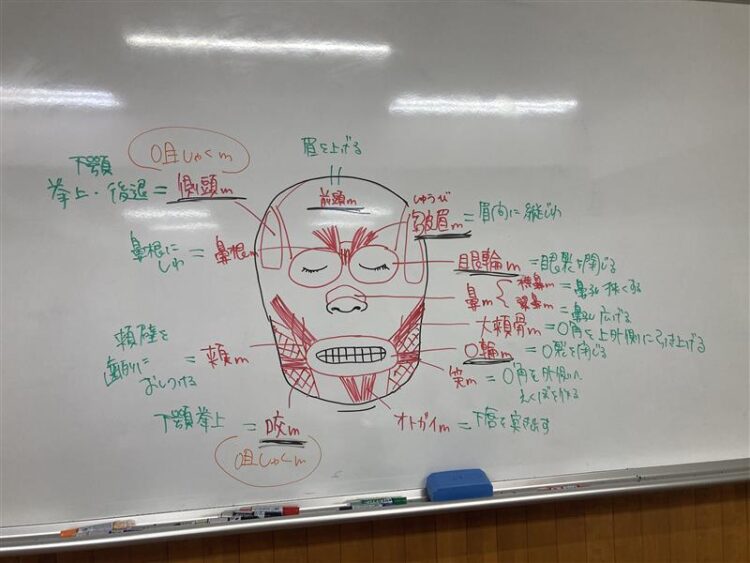 咀しゃくm
下顎
挙上・後退 = 側頭m
眉を上げる
前頭m
しゅうび
皺眉m = 眉間に縦じわ
鼻根に
しわ
= 鼻根m
眼輪m = 眼裂を閉じる
鼻m
横鼻m = 鼻孔狭くする
翼鼻m = 鼻孔広げる
大頬骨m = 口角を上外側に引き上げる
頬壁を
歯列に
おしつける
= 頬m
口輪m = 口裂を閉じる
笑m = 口角を外側に
えくぼを作る
下顎挙上 = 咬m
咀しゃくm
オトガイm = 下唇を突き出す